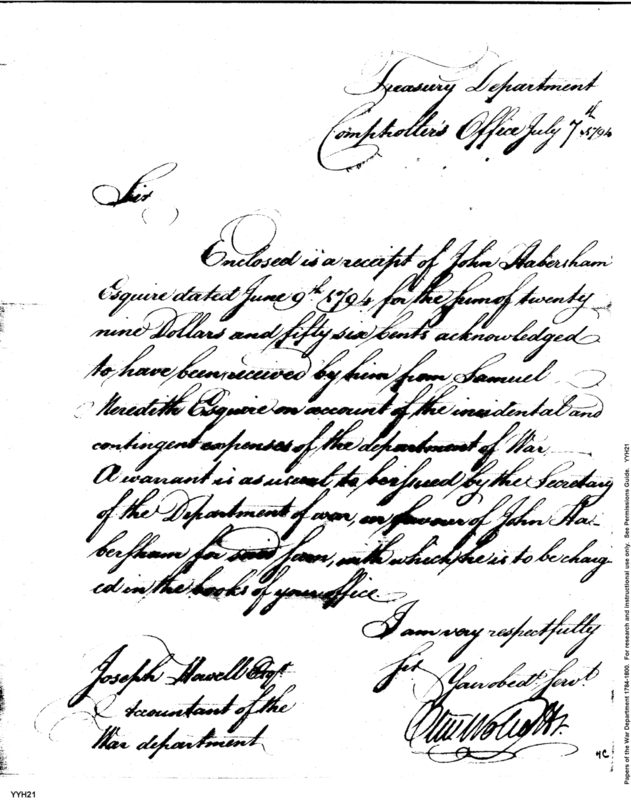 Treasury Department
Comptroller's Office July 7th 1794
Sir
Enclosed is a receipt of John Habersham
Esquire dated June 9th 1794 for the sum of twenty
nine Dollars and fifty six Cents acknowledged
to have been received by him from Samuel
Meredith Esquire on account of the incidental and
contingent expenses of the department of War
A warrant is as usual to be issued by the Secretary
of the Department of war, in favour of John Ha-
bersham for said sum, with which he is to be charg-
ed in the books of your office
I am very respectfully
Sir
Your obedt. Servt.
Joseph Howell Esqr.
Accountant of the
War department
YYH21
Papers of the War Department 1784-1800. For research and instructional use only. See Permissions Guide. YYH21